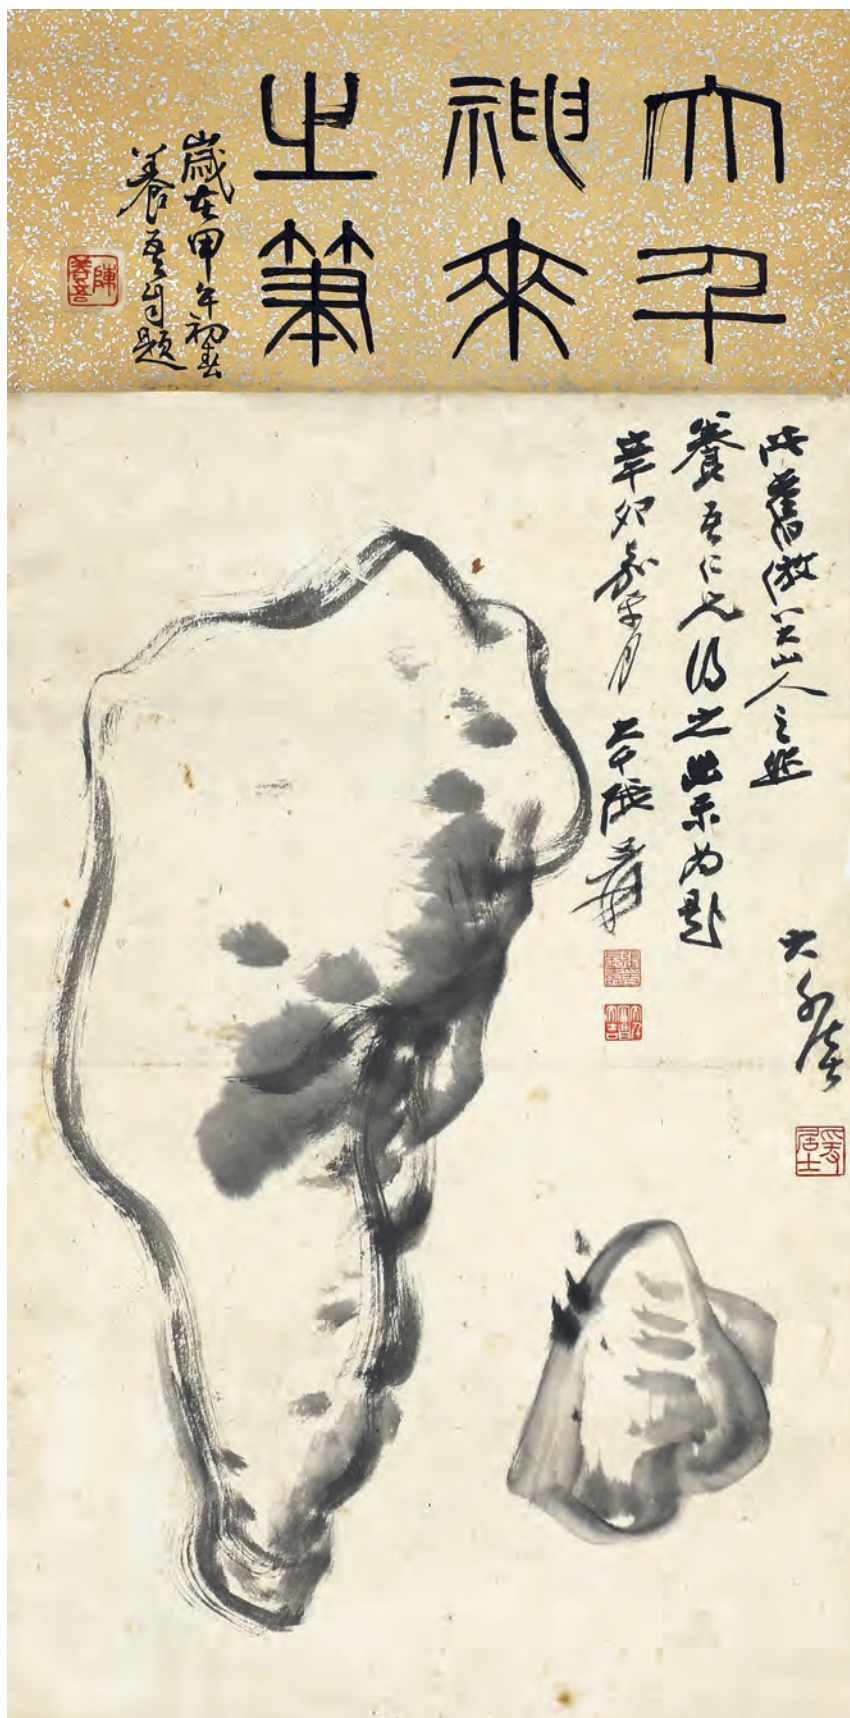 大千
神來
之筆
歲在甲午初春
養吾自題
陳養吾
此舊倣八大山人之
養吾仁兄得之出示為題
辛卯嘉平月 大千張爰
大千